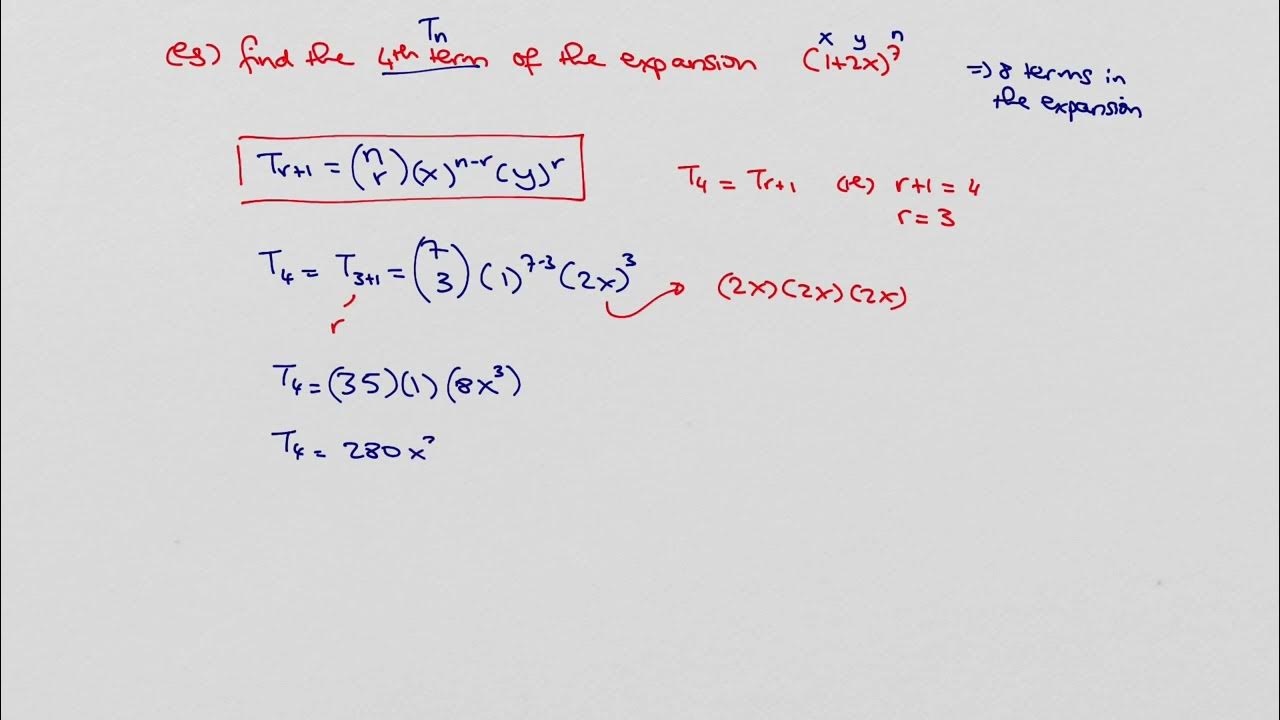 Tn
(eg) find the 4th term of the expansion (1+2x)^7
x y n
=> 8 terms in
the expansion
T_{r+1} = (n r)(x)^{n-r}(y)^r
T_4 = T_{r+1} (ie) r+1 = 4
r = 3
T_4 = T_{3+1} = (7 3)(1)^{7-3}(2x)^3
(2x)(2x)(2x)
r
T_4 = (35)(1)(8x^3)
T_4 = 280x